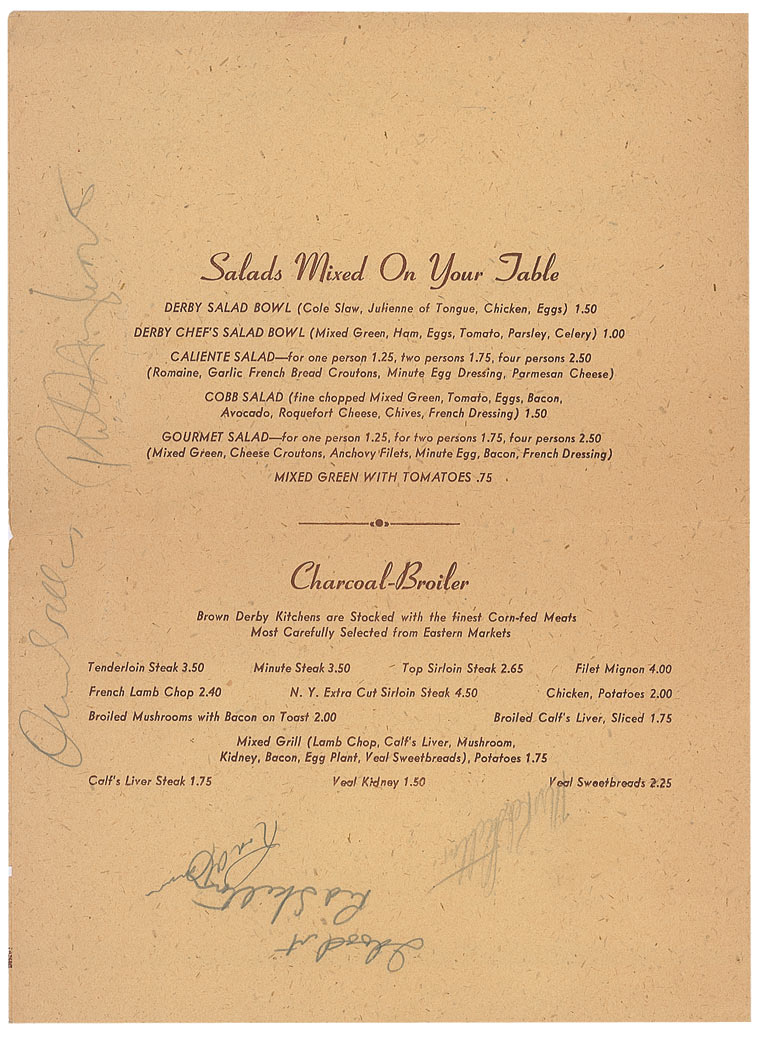 Salads Mixed On Your Table
DERBY SALAD BOWL (Cole Slaw, Julienne of Tongue, Chicken, Eggs) 1.50
DERBY CHEF'S SALAD BOWL (Mixed Green, Ham, Eggs, Tomato, Parsley, Celery) 1.00
CALIENTE SALAD—for one person 1.25, two persons 1.75, four persons 2.50
(Romaine, Garlic French Bread Croutons, Minute Egg Dressing, Parmesan Cheese)
COBB SALAD (fine chopped Mixed Green, Tomato, Eggs, Bacon,
Avocado, Roquefort Cheese, Chives, French Dressing) 1.50
GOURMET SALAD—for one person 1.25, for two persons 1.75, four persons 2.50
(Mixed Green, Cheese Croutons, Anchovy Filets, Minute Egg, Bacon, French Dressing)
MIXED GREEN WITH TOMATOES .75
Charcoal-Broiler
Brown Derby Kitchens are Stocked with the finest Corn-fed Meats
Most Carefully Selected from Eastern Markets
Tenderloin Steak 3.50 Minute Steak 3.50 Top Sirloin Steak 2.65 Filet Mignon 4.00
French Lamb Chop 2.40 N. Y. Extra Cut Sirloin Steak 4.50 Chicken, Potatoes 2.00
Broiled Mushrooms with Bacon on Toast 2.00 Broiled Calf's Liver, Sliced 1.75
Mixed Grill (Lamb Chop, Calf's Liver, Mushroom,
Kidney, Bacon, Egg Plant, Veal Sweetbreads), Potatoes 1.75
Calf's Liver Steak 1.75 Veal Kidney 1.50 Veal Sweetbreads 2.25
Red Skelton